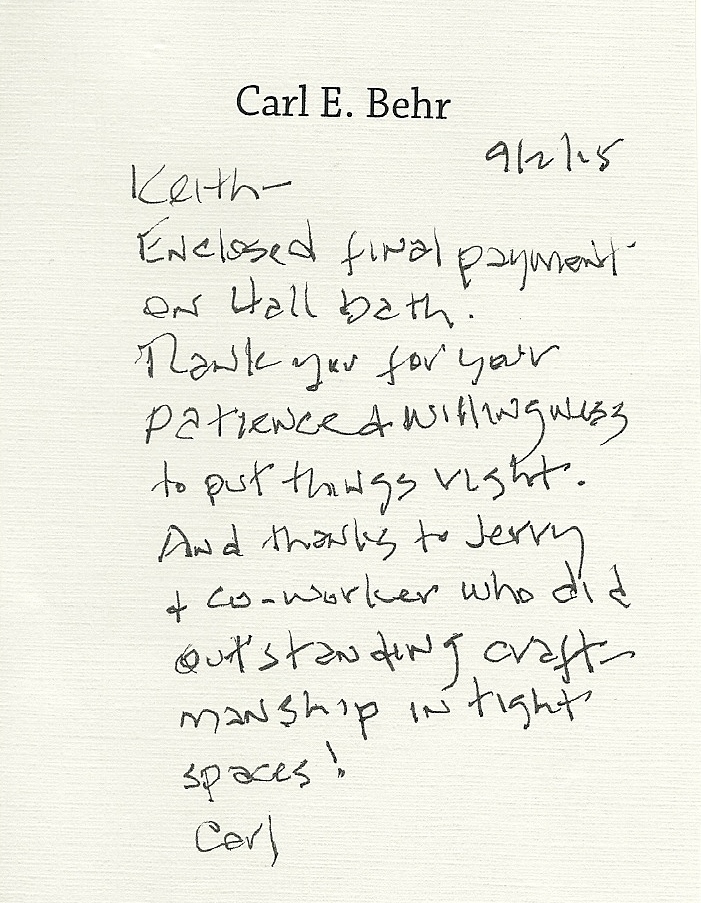 Carl E. Behr
9/2/15
Keith-
Enclosed final payment
on Hall bath.
Thank you for your
patience & willingness
to put things right.
And thanks to Jerry
& co-worker who did
outstanding craft-
manship in tight
spaces!
Carl